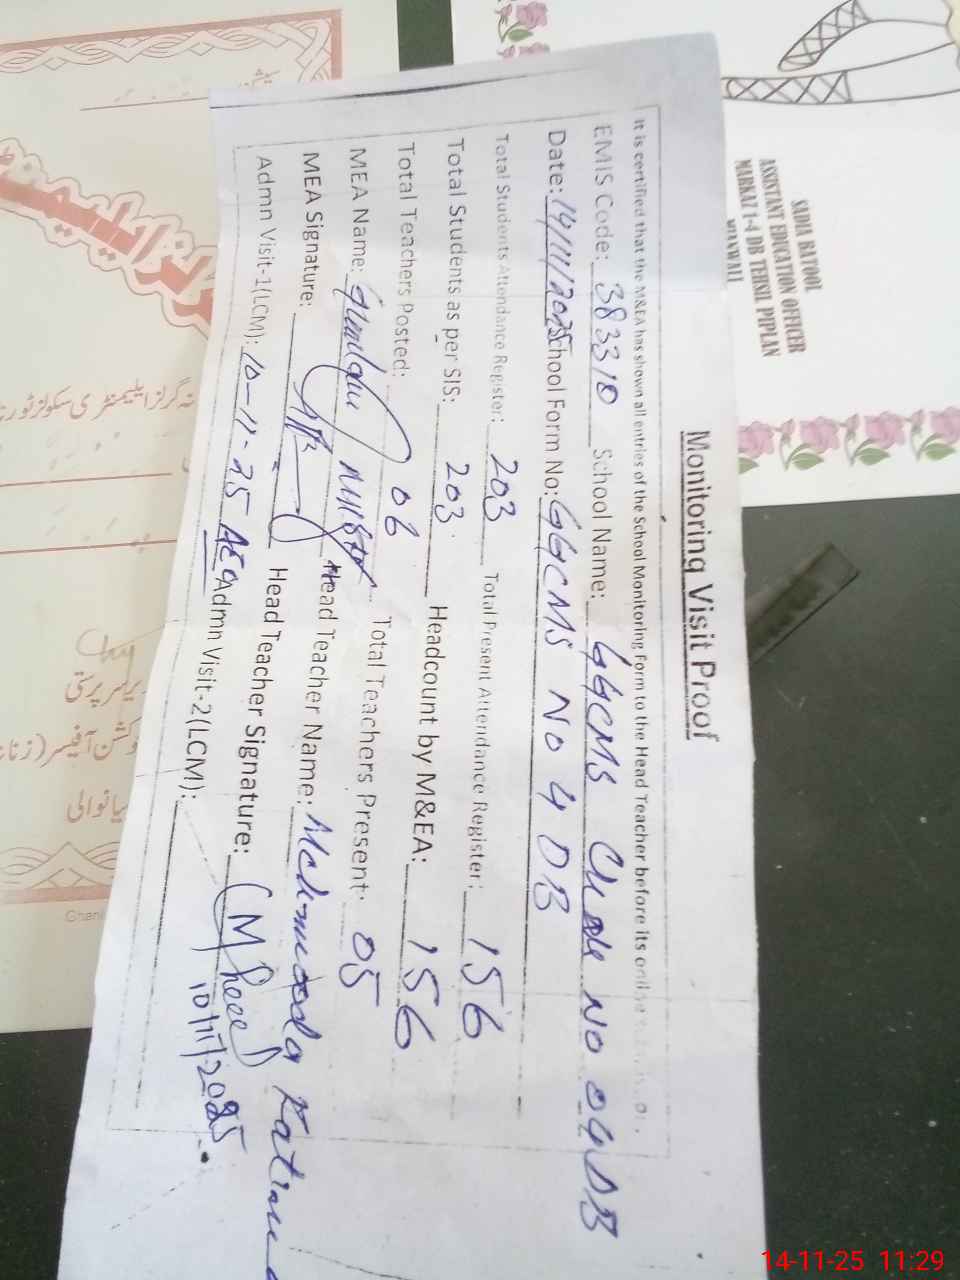 Monitoring Visit Proof
It is certified that the M&EA has shown all entries of the School Monitoring Form to the Head Teacher before its
EMIS Code: 38330 School Name: GGCMS Chak No 04 DB
Date: 14/11/2025 School Form No: GGCMS No 4 DB
Total Students Attendance Register: 203 Total Present Attendance Register: 156
Total Students as per SIS: 203 Headcount by M&EA: 156
Total Teachers Posted: 06 Total Teachers Present: 05
MEA Name: Head Teacher Name: Mehmooda
MEA Signature: Head Teacher Signature:
Admn Visit-1(LCM): 10-11-25 AEO Admn Visit-2(LCM):
10/11/2025
SADIA BATOOL
ASSISTANT EDUCATION OFFICER
MARKAZ 1-4 DB TEHSIL PIPLAN
MIANWALI
گرلز ایلیمنٹری سکولز
میانوالی
14-11-25 11:29